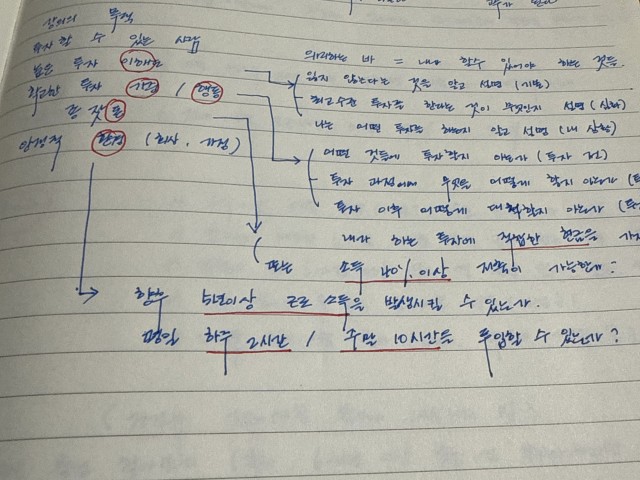 투자할 수 있는 사람
높은 투자 이해도
확고한 투자 기준 / 행동
종잣돈
안정적 환경 (회사, 가정)
의미하는 바 = 내가 할 수 있어야 하는 것을
잃지 않는다는 것을 알고 설명 (기본)
최고수한 투자를 한다는 것이 무엇인지 설명
나는 어떤 투자를 하는지 알고 설명 (내 상황)
어떤 것들에 투자할지 아는가 (투자 전)
투자 과정에서 무엇을 어떻게 할지 아는가 (투
투자 이후 어떻게 대책할지 아는가 (투
내가 하는 투자에 적합한 현금을 가지
또는 소득 40% 이상 저축이 가능한가?
향후 5년이상 근로소득을 발생시킬 수 있는가.
평일 하루 2시간 / 주말 10시간을 투입할 수 있는가?